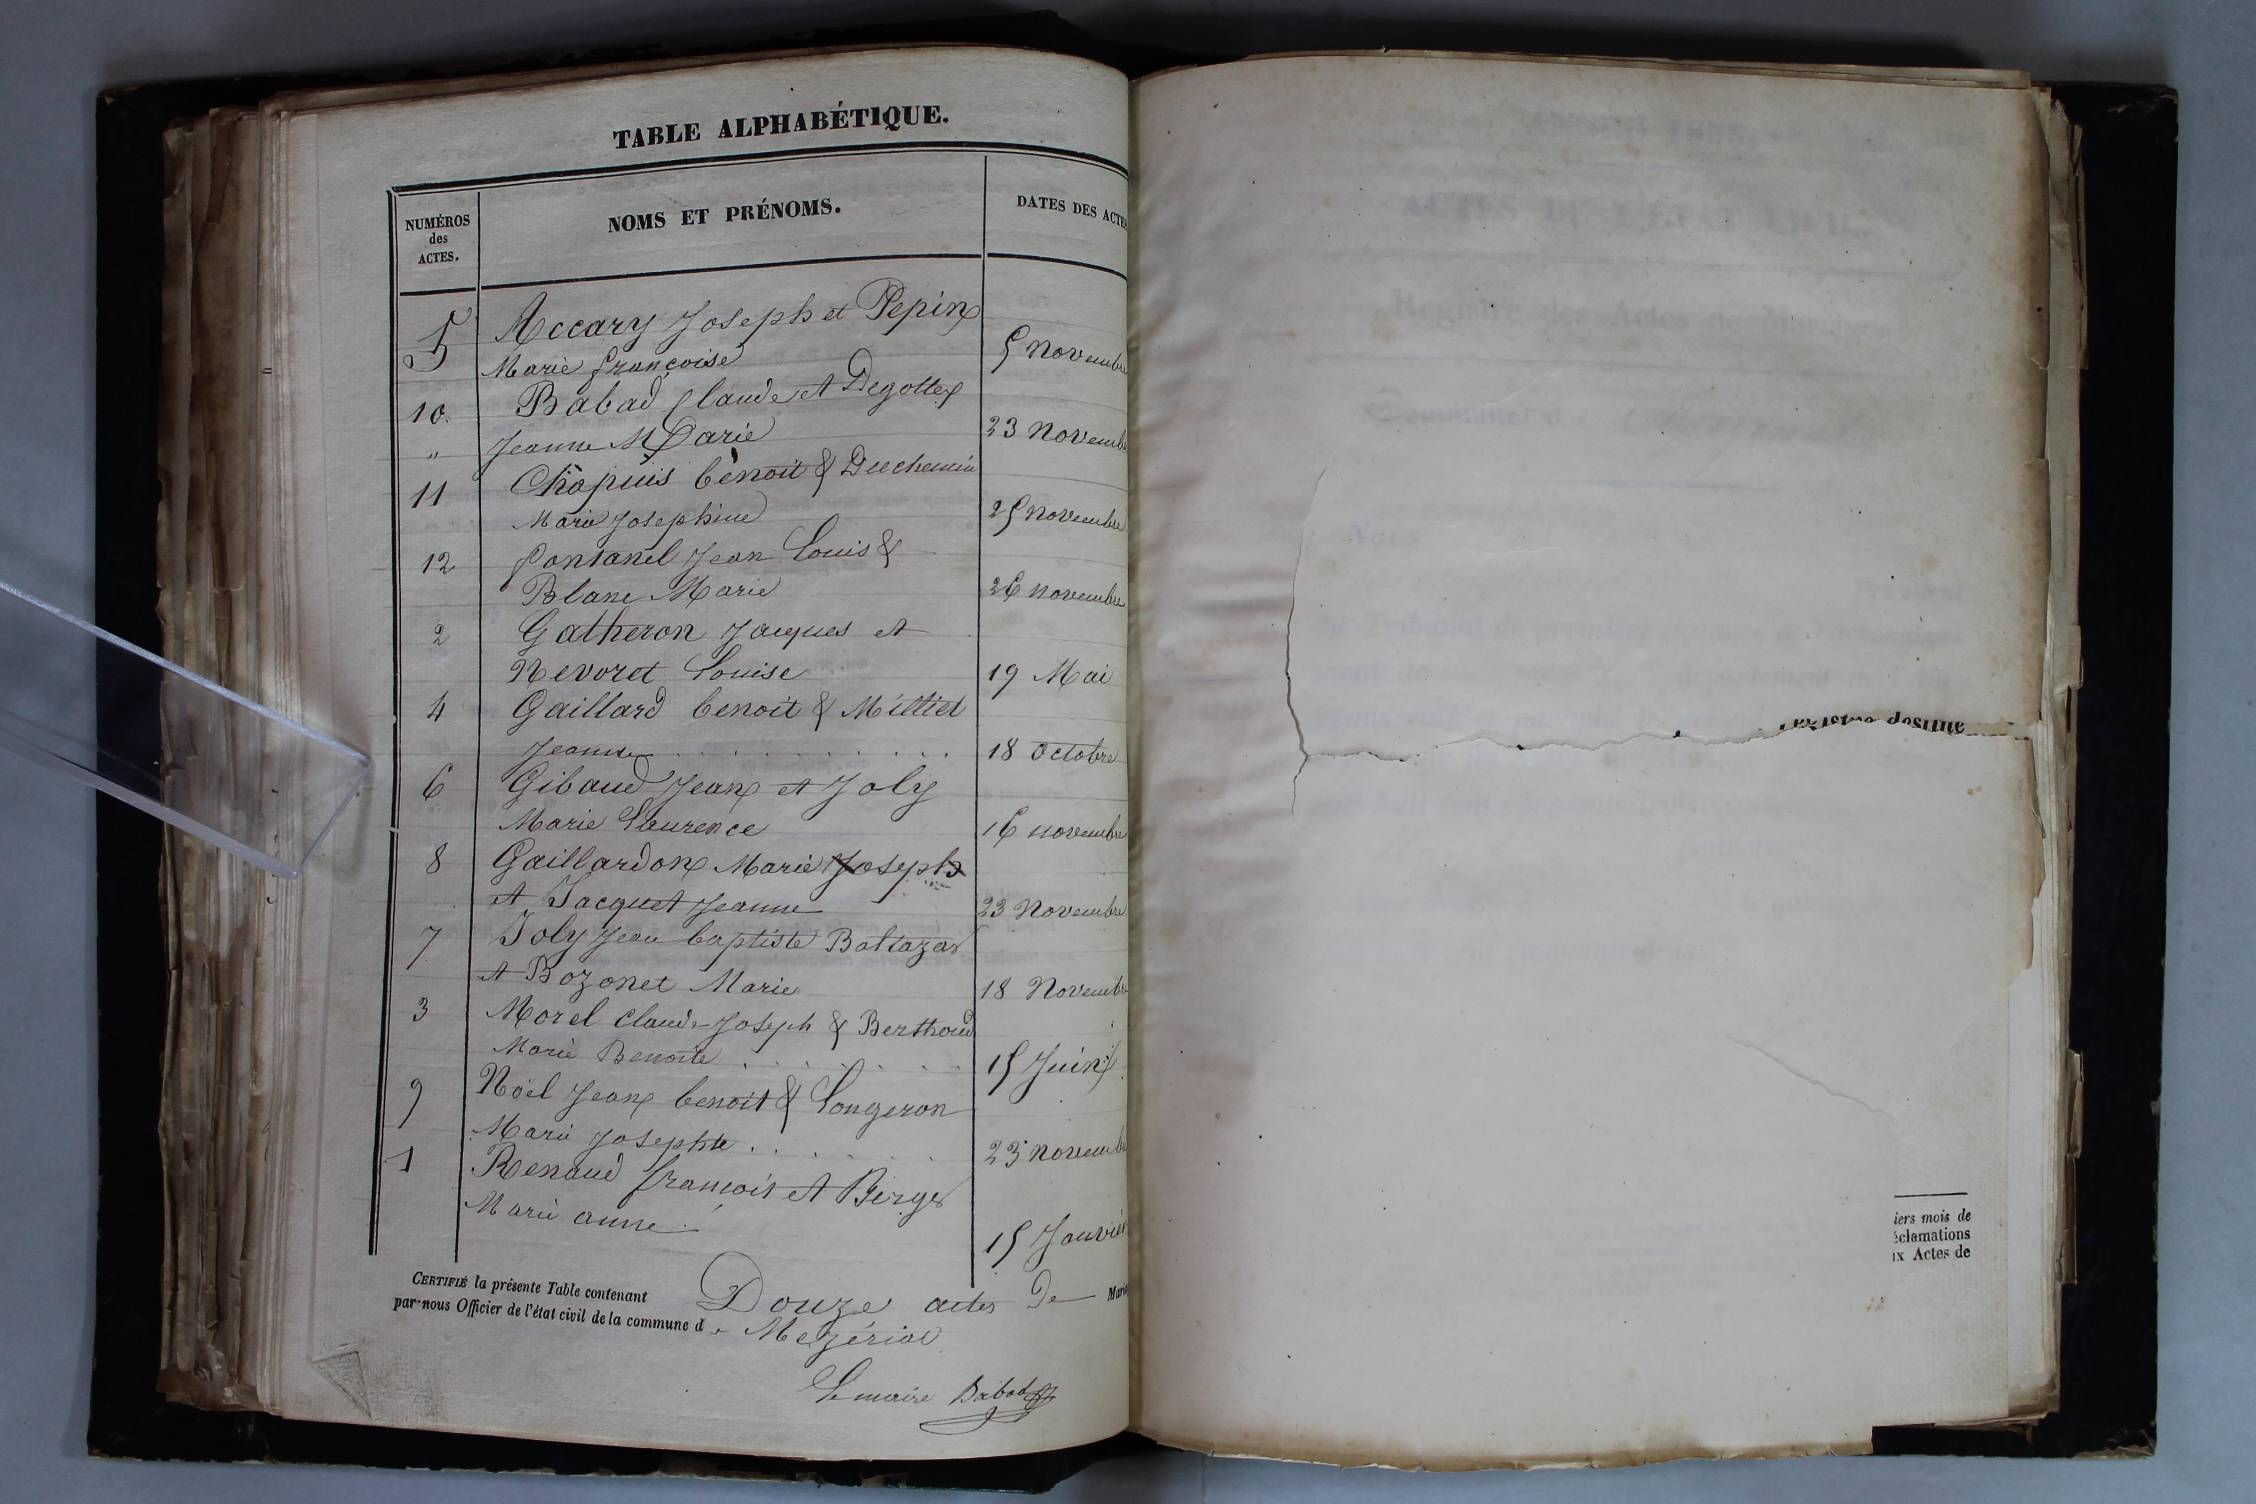 TABLE ALPHABÉTIQUE.
NUMÉROS des ACTES.
NOMS ET PRÉNOMS.
DATES DES ACTES
5 Accary Joseph et Pepin
Marie françoise 5 Novembre
10. Babad Claude et Degottex
" Jeanne Marie 23 Novembre
11 Chapuis benoit & Duchemin
Marie Josephine 25 Novembre
12 fontanel Jean Louis &
Blanc Marie 26 novembre
2 Gatheron Jacques et
Nevoret Louise 19 Mai
4 Gaillard benoit & Milliet
Jeanne . . . . . . . . . . . 18 Octobre
6 Gibaud Jean et Joly
Marie Laurence 16 novembre
8 Gaillardon Marie Joseph
et Jacquet Jeanne 23 Novembre
7 Joly Jean baptiste Baltazar
et Bozonet Marie 18 Novembre
3 Morel Claude Joseph & Berthoud
Marie Benoite . . . . . . 15 Juin
9 Noël Jean benoit & Longeron
Marie Josephte . . . . . . 23 novembre
1 Renaud françois et Berger
Marie anne . 15 Janvier
CERTIFIÉ la présente Table contenant Douze actes de Mari
par nous Officier de l'état civil de la commune de Mezériat
Le maire Babad
registre destiné
iers mois de
éclamations
ix Actes de